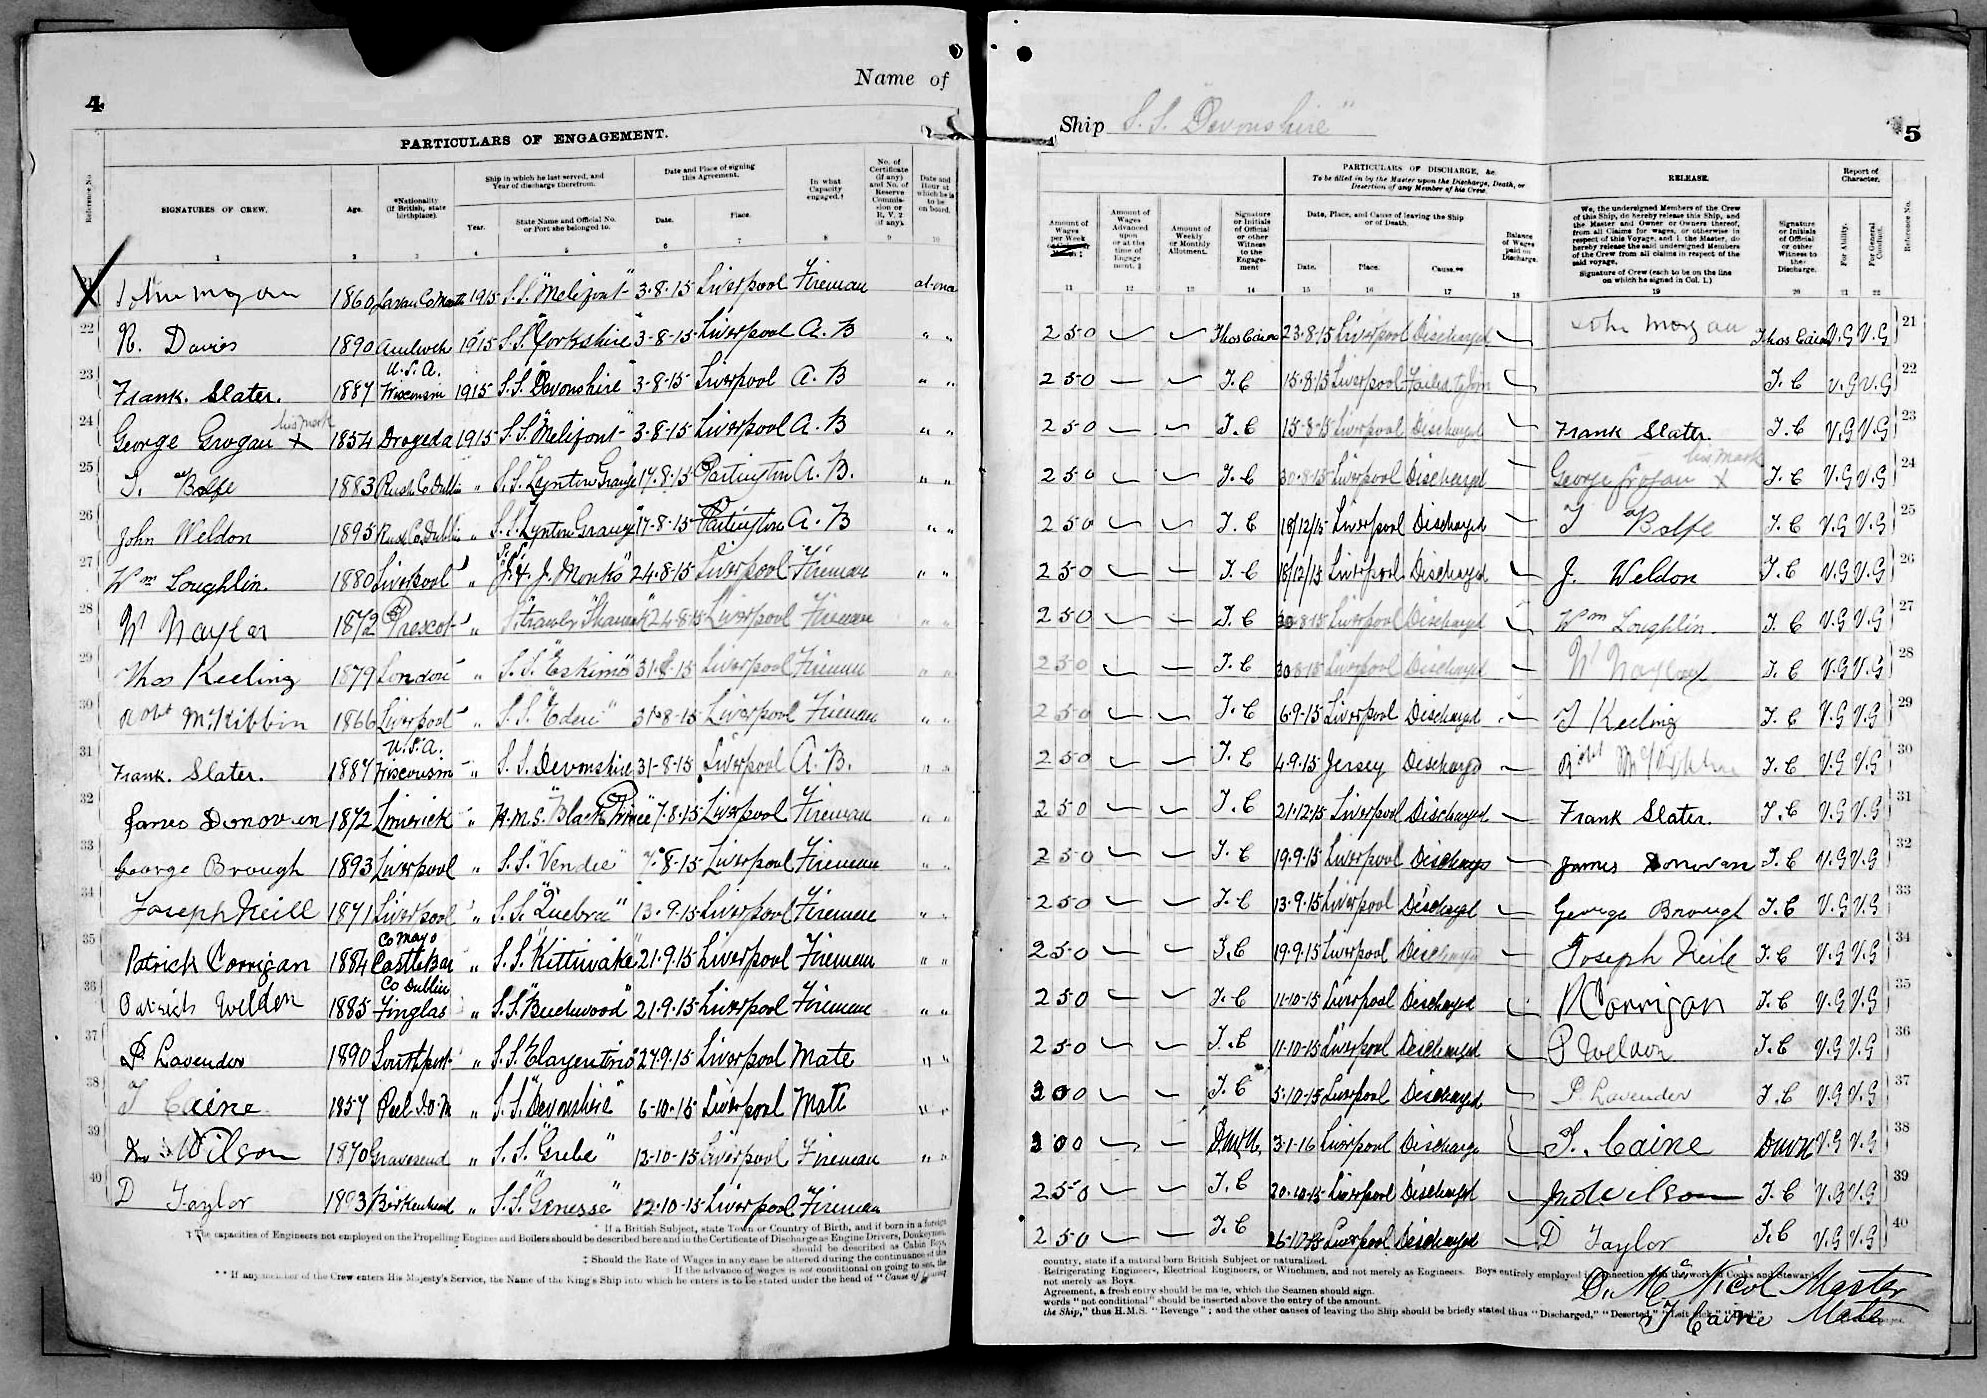 4
Name of
PARTICULARS OF ENGAGEMENT.
Reference No.
SIGNATURES OF CREW.
Age.
*Nationality (if British, state birthplace).
Ship in which he last served, and Year of discharge therefrom.
Year.
State Name and Official No. or Port she belonged to.
Date and Place of signing this Agreement.
Date.
Place.
In what Capacity engaged.†
No. of Certificate (if any) and No. of Reserve Commission or R.V.2 (if any).
Date and Hour at which he is to be on board.
1 2 3 4 5 6 7 8 9 10
21 John Morgan 1860 1915 S.S. "Melifont" 3-8-15 Liverpool Fireman at once
22 R. Davies 1890 Amlwch 1915 S.S. "Yorkshire" 3-8-15 Liverpool A.B " "
23 Frank. Slater. 1887 U.S.A. Wisconsin 1915 S.S. "Devonshire" 3-8-15 Liverpool A.B " "
24 George Grogan his mark X 1854 Drogeda 1915 S.S. "Melifont" 3-8-15 Liverpool A.B " "
25 T. Bolfe 1883 Rush Co Dublin " S.S. "Lynton Grange" 17.8.15 Partington A.B. " "
26 John Weldon 1895 Rush Co Dublin " S.S. "Lynton Grange" 17-8-15 Partington A.B " "
27 Wm Loughlin. 1880 Liverpool " S.S. "J. & J. Monks" 24-8-15 Liverpool Fireman " "
28 W Naylor 1872 Prescot " 24-8-15 Liverpool Fireman " "
29 Thos Keeling 1879 London " S.S. "Eskimo" 31-8-15 Liverpool Fireman " "
30 Robt McKibbin 1866 Liverpool " S.S. "Eden" 31-8-15 Liverpool Fireman " "
31 Frank. Slater. 1887 U.S.A. Wisconsin " S.S. Devonshire 31-8-15 Liverpool A.B. " "
32 James Donovan 1872 Limerick " H.M.S. "Black Prince" 7.8.15 Liverpool Fireman " "
33 George Brough 1893 Liverpool " S.S. "Vendee" 7-8-15 Liverpool Fireman " "
34 Joseph Neill 1871 Liverpool " S.S. "Quebra" 13-9-15 Liverpool Fireman " "
35 Patrick Corrigan 1884 Co Mayo Castlebar " S.S. "Kittiwake" 21.9.15 Liverpool Fireman " "
36 Patrick Weldon 1885 Co Dublin Finglas " S.S. "Beechwood" 21.9.15 Liverpool Fireman " "
37 P. Lavender 1890 Southport " 27.9.15 Liverpool Mate " "
38 T Caine 1857 Peel I.O.M " S.S. "Devonshire" 6-10-15 Liverpool Mate " "
39 Jno Wilson 1870 Gravesend " S.S. "Grebe" 12-10-15 Liverpool Fireman " "
40 D Taylor 1893 Birkenhead " S.S. "Genesse" 12.10-15 Liverpool Fireman
* If a British Subject, state Town or Country of Birth, and if born in a foreign
† The capacities of Engineers not employed on the Propelling Engines and Boilers should be described here and in the Certificate of Discharge as Engine Drivers, Donkeymen,
should be described as Cabin Boys,
‡ Should the Rate of Wages in any case be altered during the continuance of the
If the advance of wages is not conditional on going to sea, the
** If any member of the Crew enters His Majesty's Service, the Name of the King's Ship into which he enters is to be stated under the head of "Cause of leaving
Ship S.S. "Devonshire"
5
PARTICULARS OF DISCHARGE, &c.
To be filled in by the Master upon the Discharge, Death, or Desertion of any Member of his Crew.
RELEASE.
Report of Character.
Amount of Wages per Week
Amount of Wages Advanced upon or at the time of Engagement.‡
Amount of Weekly or Monthly Allotment.
Signature or Initials of Official or other Witness to the Engagement
Date, Place, and Cause of leaving the Ship or of Death.
Date.
Place.
Cause.**
Balance of Wages paid on Discharge.
We, the undersigned Members of the Crew of this Ship, do hereby release this Ship, and the Master and Owner or Owners thereof, from all Claims for wages, or otherwise in respect of this Voyage, and I, the Master, do hereby release the said undersigned Members of the Crew from all claims in respect of the said voyage.
Signature of Crew (each to be on the line on which he signed in Col. 1.)
Signature or Initials of Official or other Witness to the Discharge.
For Ability.
For General Conduct.
Reference No.
11 12 13 14 15 16 17 18 19 20 21 22
2 5 0 Thos Caine 23-8-15 Liverpool Discharged John Morgan Thos Caine V.G V.G 21
2 5 0 T.C 15-8-15 Liverpool Failed to Join T.C V.G V.G 22
2 5 0 T.C 15-8-15 Liverpool Discharged Frank Slater. T.C V.G V.G 23
2 5 0 T.C 30-8-15 Liverpool Discharged George Grogan his mark X T.C V.G V.G 24
2 5 0 T.C 18/12/15 Liverpool Discharged T Bolfe T.C V.G V.G 25
2 5 0 T.C 18/12/15 Liverpool Discharged J. Weldon T.C V.G V.G 26
2 5 0 T.C 30-8-15 Liverpool Discharged Wm Loughlin. T.C V.G V.G 27
2 5 0 T.C 30-8-15 Liverpool Discharged W Naylor T.C V.G V.G 28
2 5 0 T.C 6-9-15 Liverpool Discharged T Keeling T.C V.G V.G 29
2 5 0 T.C 4.9.15 Jersey Discharged Robt McKibbin T.C V.G V.G 30
2 5 0 T.C 21.12.15 Liverpool Discharged Frank Slater. T.C V.G V.G 31
2 5 0 T.C 19.9.15 Liverpool Discharged James Donovan T.C V.G V.G 32
2 5 0 T.C 13.9.15 Liverpool Discharged George Brough T.C V.G V.G 33
2 5 0 T.C 19.9.15 Liverpool Discharged Joseph Neill T.C V.G V.G 34
2 5 0 T.C 11-10-15 Liverpool Discharged P Corrigan T.C V.G V.G 35
2 5 0 T.C 11-10-15 Liverpool Discharged P Weldon T.C V.G V.G 36
3 0 0 T.C 5-10-15 Liverpool Discharged P Lavender T.C V.G V.G 37
3 0 0 DMcN 3-1-16 Liverpool Discharge T. Caine DMcN V.G V.G 38
2 5 0 T.C 20-10-15 Liverpool Discharged Jno Wilson T.C V.G V.G 39
2 5 0 T.C 26-10-15 Liverpool Discharged D Taylor T.C V.G V.G 40
country, state if a natural born British Subject or naturalized.
Refrigerating Engineers, Electrical Engineers, or Winchmen, and not merely as Engineers. Boys entirely employed in connection with the work of Cooks and Stewards
not merely as Boys.
Agreement, a fresh entry should be made, which the Seamen should sign.
words "not conditional" should be inserted above the entry of the amount.
the Ship," thus H.M.S. "Revenge"; and the other causes of leaving the Ship should be briefly stated thus "Discharged," "Deserted," "Left sick," "Died."
D. McNicol Master
T Caine Mate